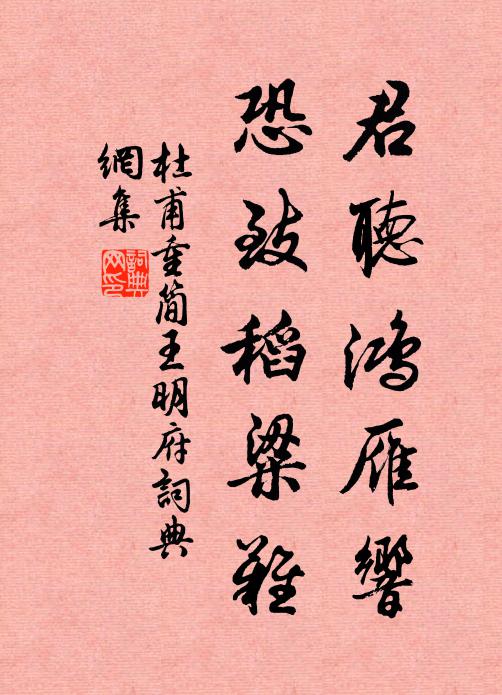 君聽鴻雁響
恐致稻粱難
杜甫重簡王明府詞典
網集
詞典
网印